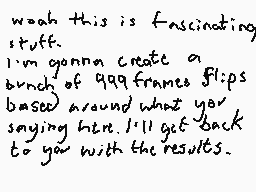 woah this is fascinating
stuff.
I'm gonna create a
bunch of 999 frames flips
based around what you
saying here. I'll get back
to you with the results.